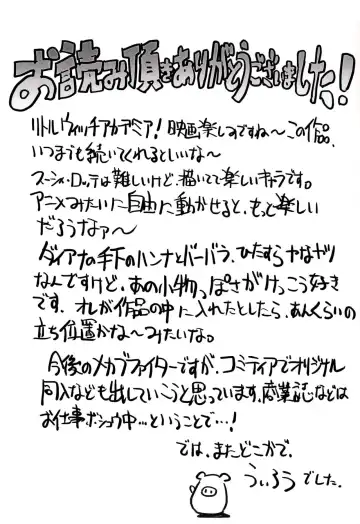 お読み頂きありがとうございました!
リトルウィッチアカデミア!映画楽しみですね〜この作品、
いつまでも続いてくれるといいな〜
スーシィ・ロッテは難しいけど、描いてて楽しいキャラです。
アニメみたいに自由に動かせると、もっと楽しい
だろうなァ〜
ダイアナの手下のハンナとバーバラ、ひたすらヤなヤツ
なんですけど、あの小物っぽさがけっこう好き
です、オレが作品の中に入れたとしたら、あんくらいの
立ち位置かな〜みたいな。
今後のメカブファイターですが、コミティアでオリジナル
同人なども出していこうと思っています、商業誌などは
お仕事ボシュウ中…ということで…!
では、またどこかで、
ういろうでした。